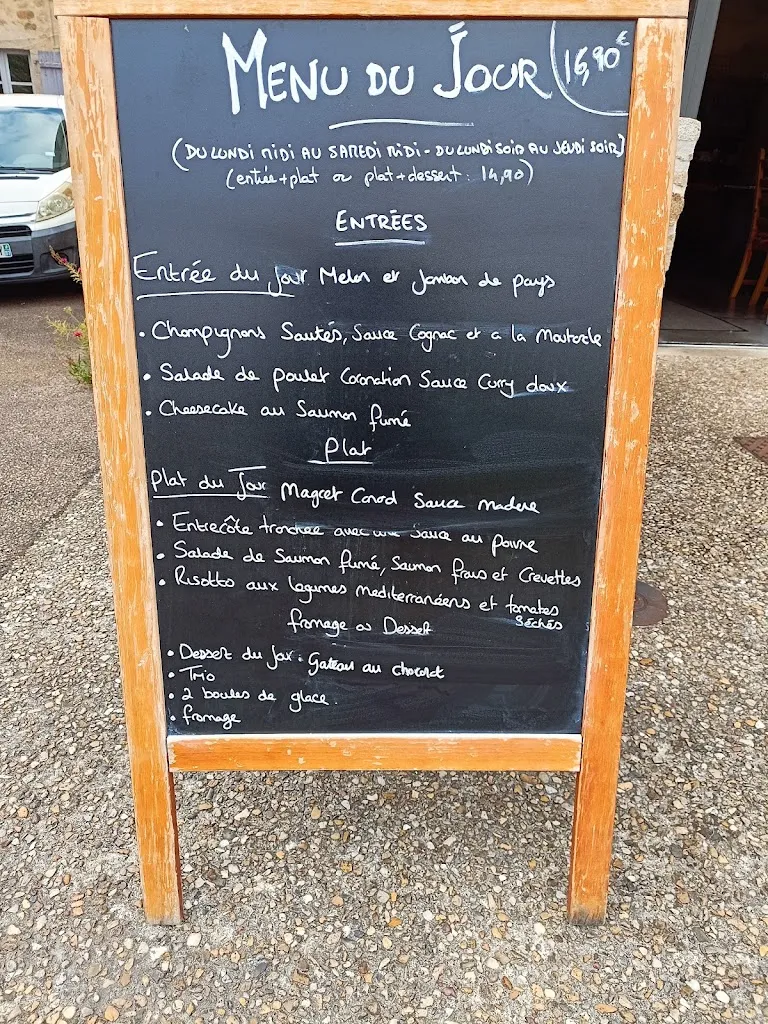 MENU DU JOUR 16,90€
(DU LUNDI MIDI AU SAMEDI MIDI - DU LUNDI SOIR AU JEUDI SOIR)
(entrée+plat ou plat+dessert : 14,90)
ENTRÉES
Entrée du jour Melon et Jambon de pays
• Champignons Sautés, Sauce Cognac et a la Moutarde
• Salade de poulet Coronation Sauce Curry doux
• Cheesecake au Saumon fumé
Plat
Plat du Jour Magret Canard Sauce madere
• Entrecôte tranchée avec une Sauce au poivre
• Salade de Saumon fumé, Saumon frais et Crevettes
• Risotto aux legumes mediterranéens et tomates
séchés
fromage ou Dessert
• Dessert du Jour : Gateau au chocolat
• Trio
• 2 boules de glace.
• fromage